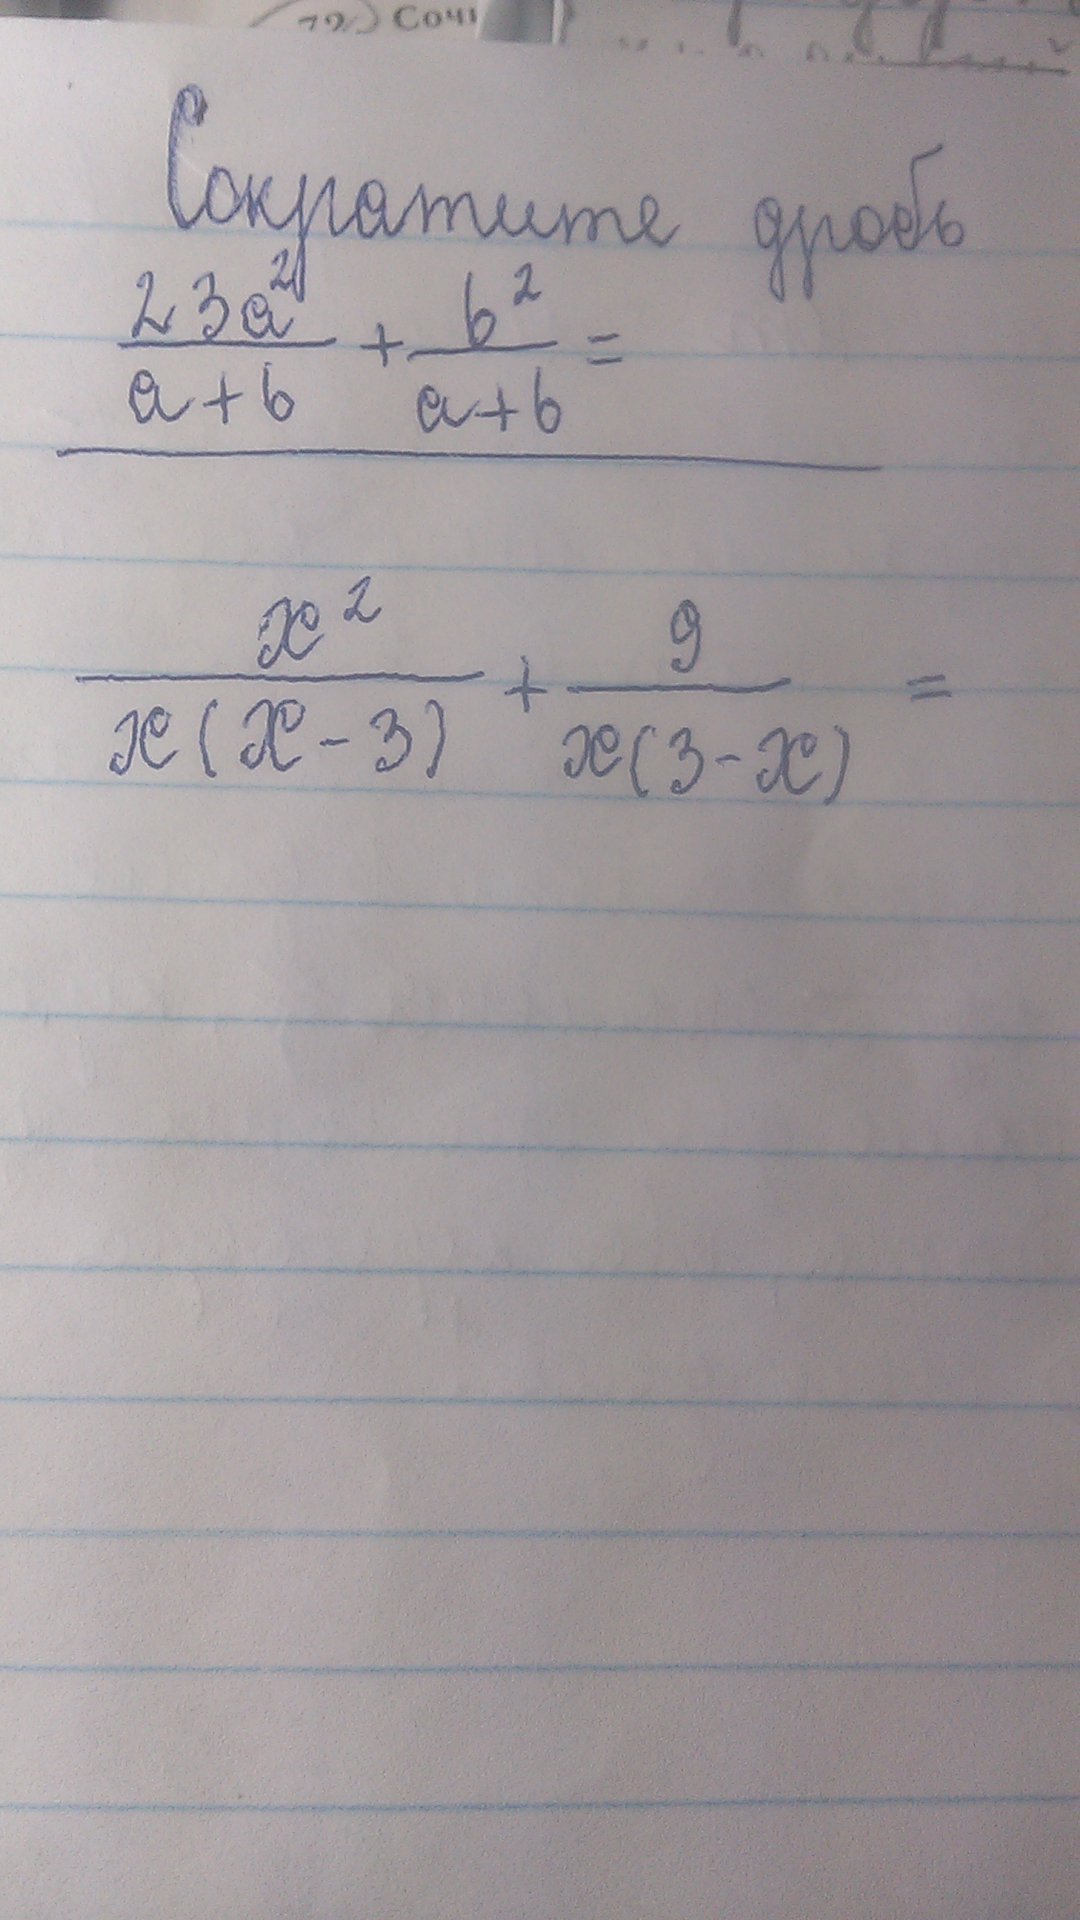 12.) Сочи
Сократите дробь
23a²/a+b + b²/a+b =
x²/x(x-3) + 9/x(3-x) =